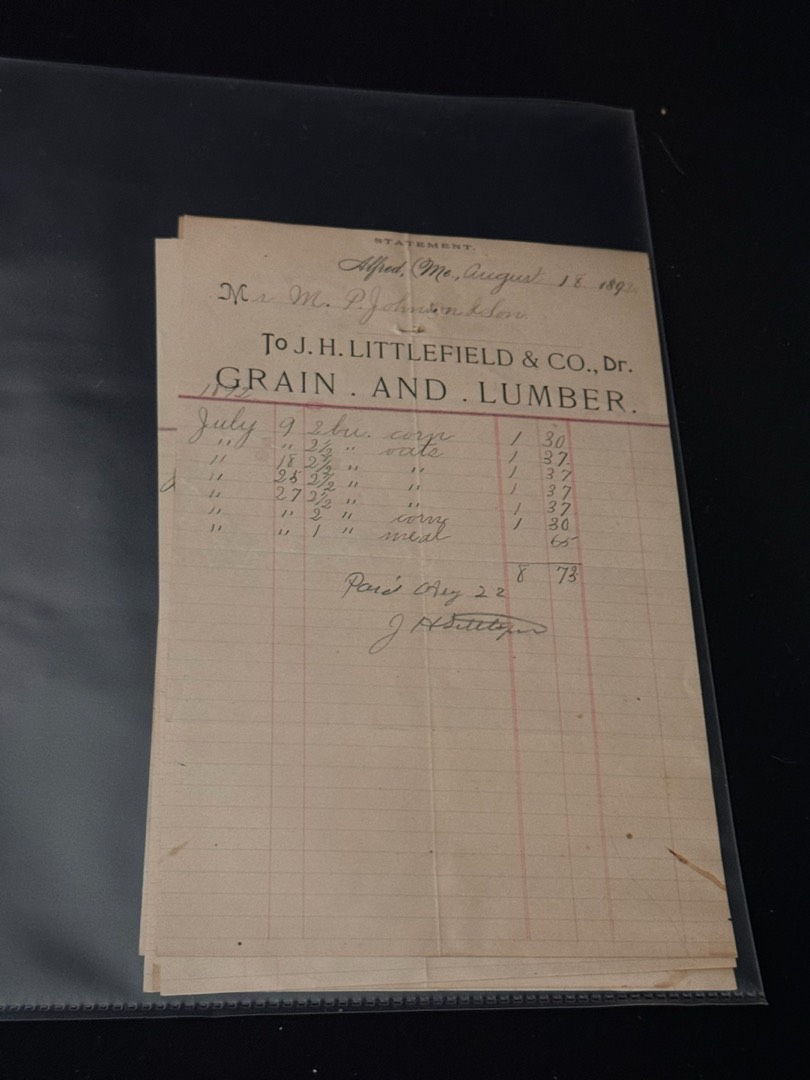 STATEMENT.
Alfred, Me., August 18 1892
Mr M. P. Johnson & Son
To J. H. LITTLEFIELD & CO., Dr.
GRAIN . AND . LUMBER.
1892
July 9 2 bu. corn 1 30
" " 2½ " oats 1 37
" 18 2½ " " 1 37
" 25 2½ " " 1 37
" 27 2½ " " 1 37
" " 2 " corn 1 30
" " 1 " meal 65
8 73
Paid Aug 22
J H